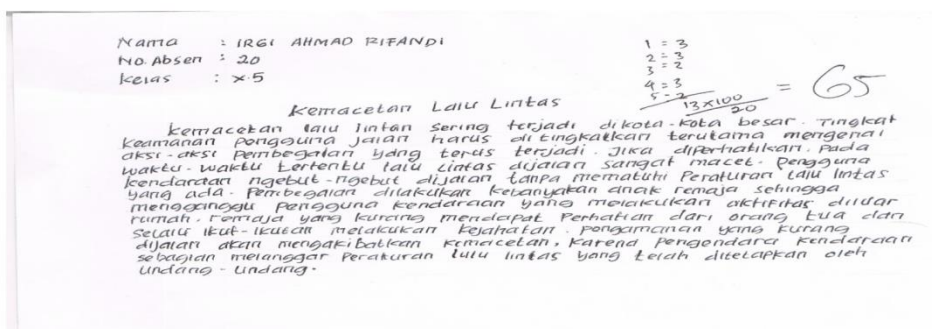 Nama : IRGI AHMAD RIFANDI
No. Absen : 20
Kelas : X.5
1 = 3
2 = 3
3 = 2
4 = 3
5 = 2
13 x 100
20
= 65
Kemacetan Lalu Lintas
Kemacetan lalu lintan sering terjadi dikota-kota besar. Tingkat
keamanan pongguna jalan harus ditingkatkan terutama mengenai
aksi-aksi pembegalan yang terus terjadi. Jika diperhatikan, pada
waktu-waktu tertentu lalu lintas dijalan sangat macet. Pengguna
kendaraan ngebut-ngebut dijalan tanpa mematuhi Peraturan lalu lintas
yang ada. Pembegalan dilakukan kebanyakan anak remaja sehingga
mengganggu pengguna kendaraan yang melakukan aktifitas diluar
rumah. remaja yang kurang mendapat Perhatian dari orang tua dan
selalu ikut-ikutan melakukan kejahatan. pongamanan yang kurang
dijalan akan mengakibatkan kemacetan, karena pengendara kendaraan
sebagian melanggar peraturan lulu lintas yang telah ditetapkan oleh
undang-undang.